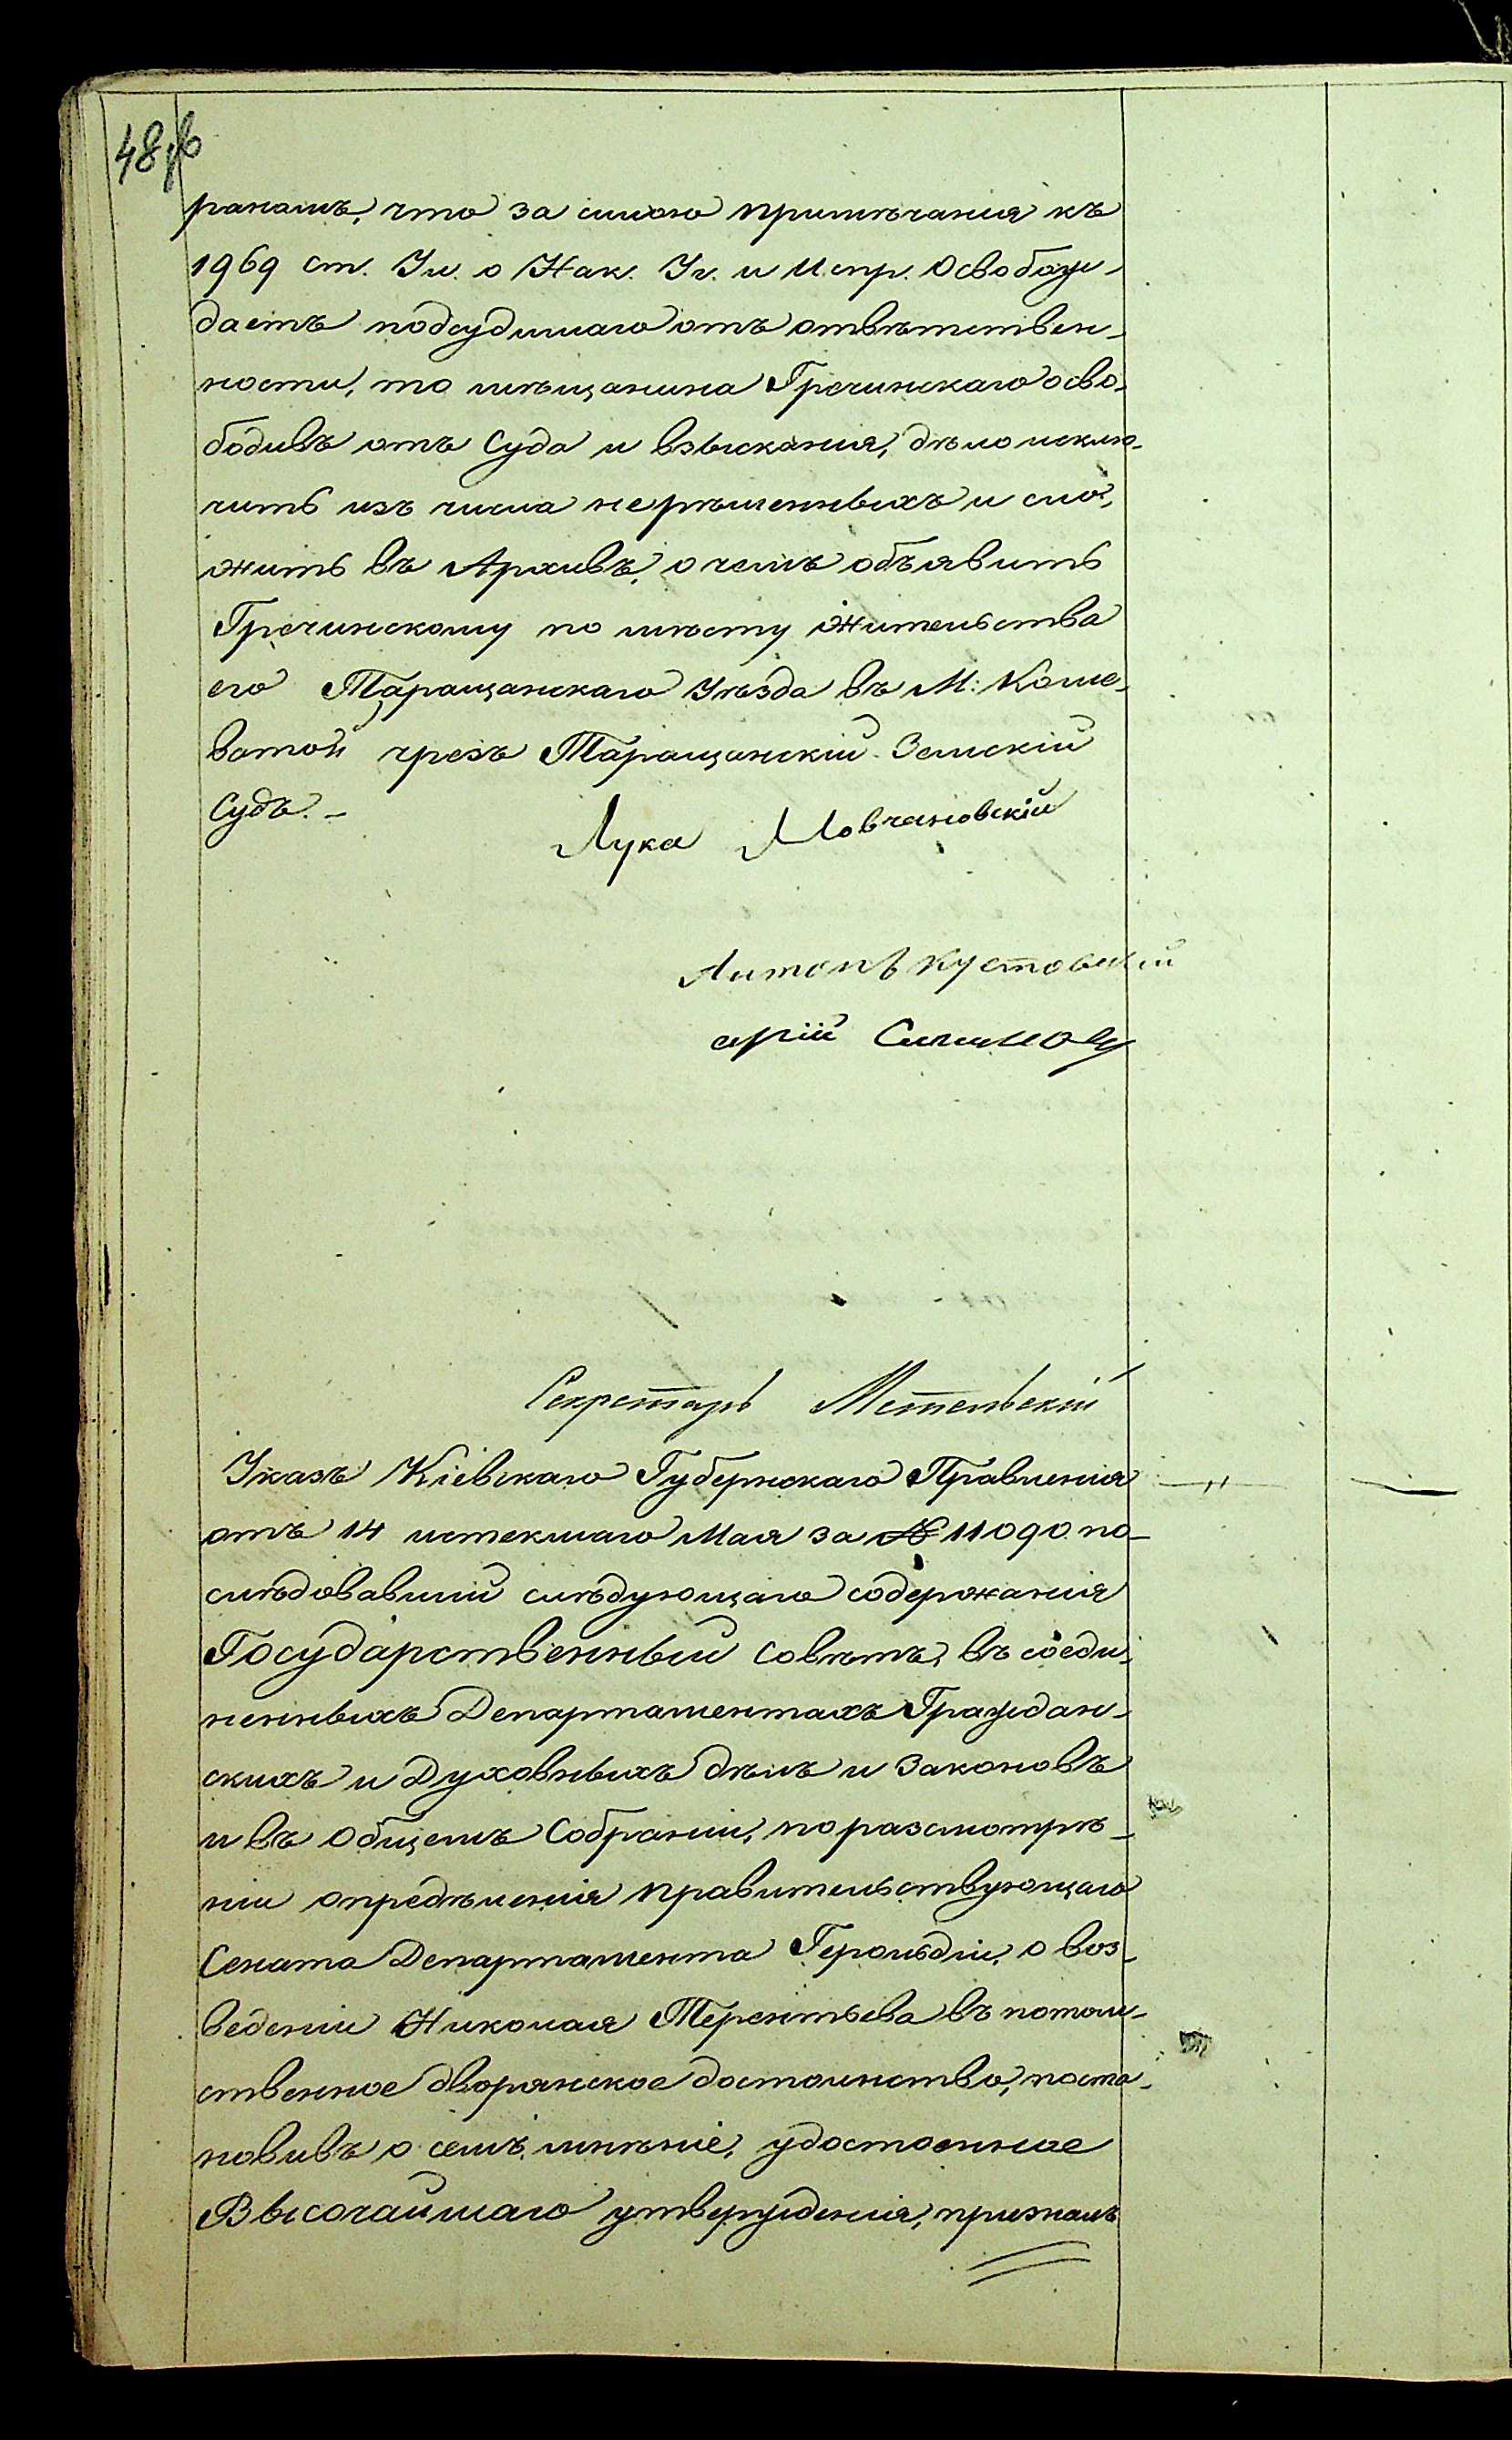 ракамъ, что за силою примѣчанія къ
1969 ст. Ул. о Нак. Уг. и Испр. Освобож-
даетъ подсудимаго отъ отвѣтствен-
ности, то мѣщанина Гречинскаго осво-
бодивъ отъ Суда и взысканія, дѣло исклю-
чить изъ числа нерѣшенныхъ и сло-
жить въ Архивъ, о чемъ объявить
Гречинскому по мѣсту жительства
его Таращанскаго Уѣзда въ М: Коше-
ватой чрезъ Таращанскій Земскій
Судъ. -
Лука Мовчановскій
Антонъ Кустовскій
Секретарь Метельскій
Указъ Кіевскаго Губернскаго Правленія
отъ 14 истекшаго Мая за № 11090 по-
слѣдовавшій слѣдующаго содержанія
Государственный Совѣтъ, въ соеди-
ненныхъ Департаментахъ Граждан-
скихъ и Духовныхъ дѣлъ и Законовъ
и въ Общемъ Собраніи, по разсмотрѣ-
ніи опредѣленія Правительствующаго
Сената Департамента Герольдіи, о воз-
веденіи Николая Терентьева въ потом-
ственное дворянское достоинство, поста-
новивъ о семъ мнѣніе, удостоенное
Высочайшаго утвержденія, призналъ